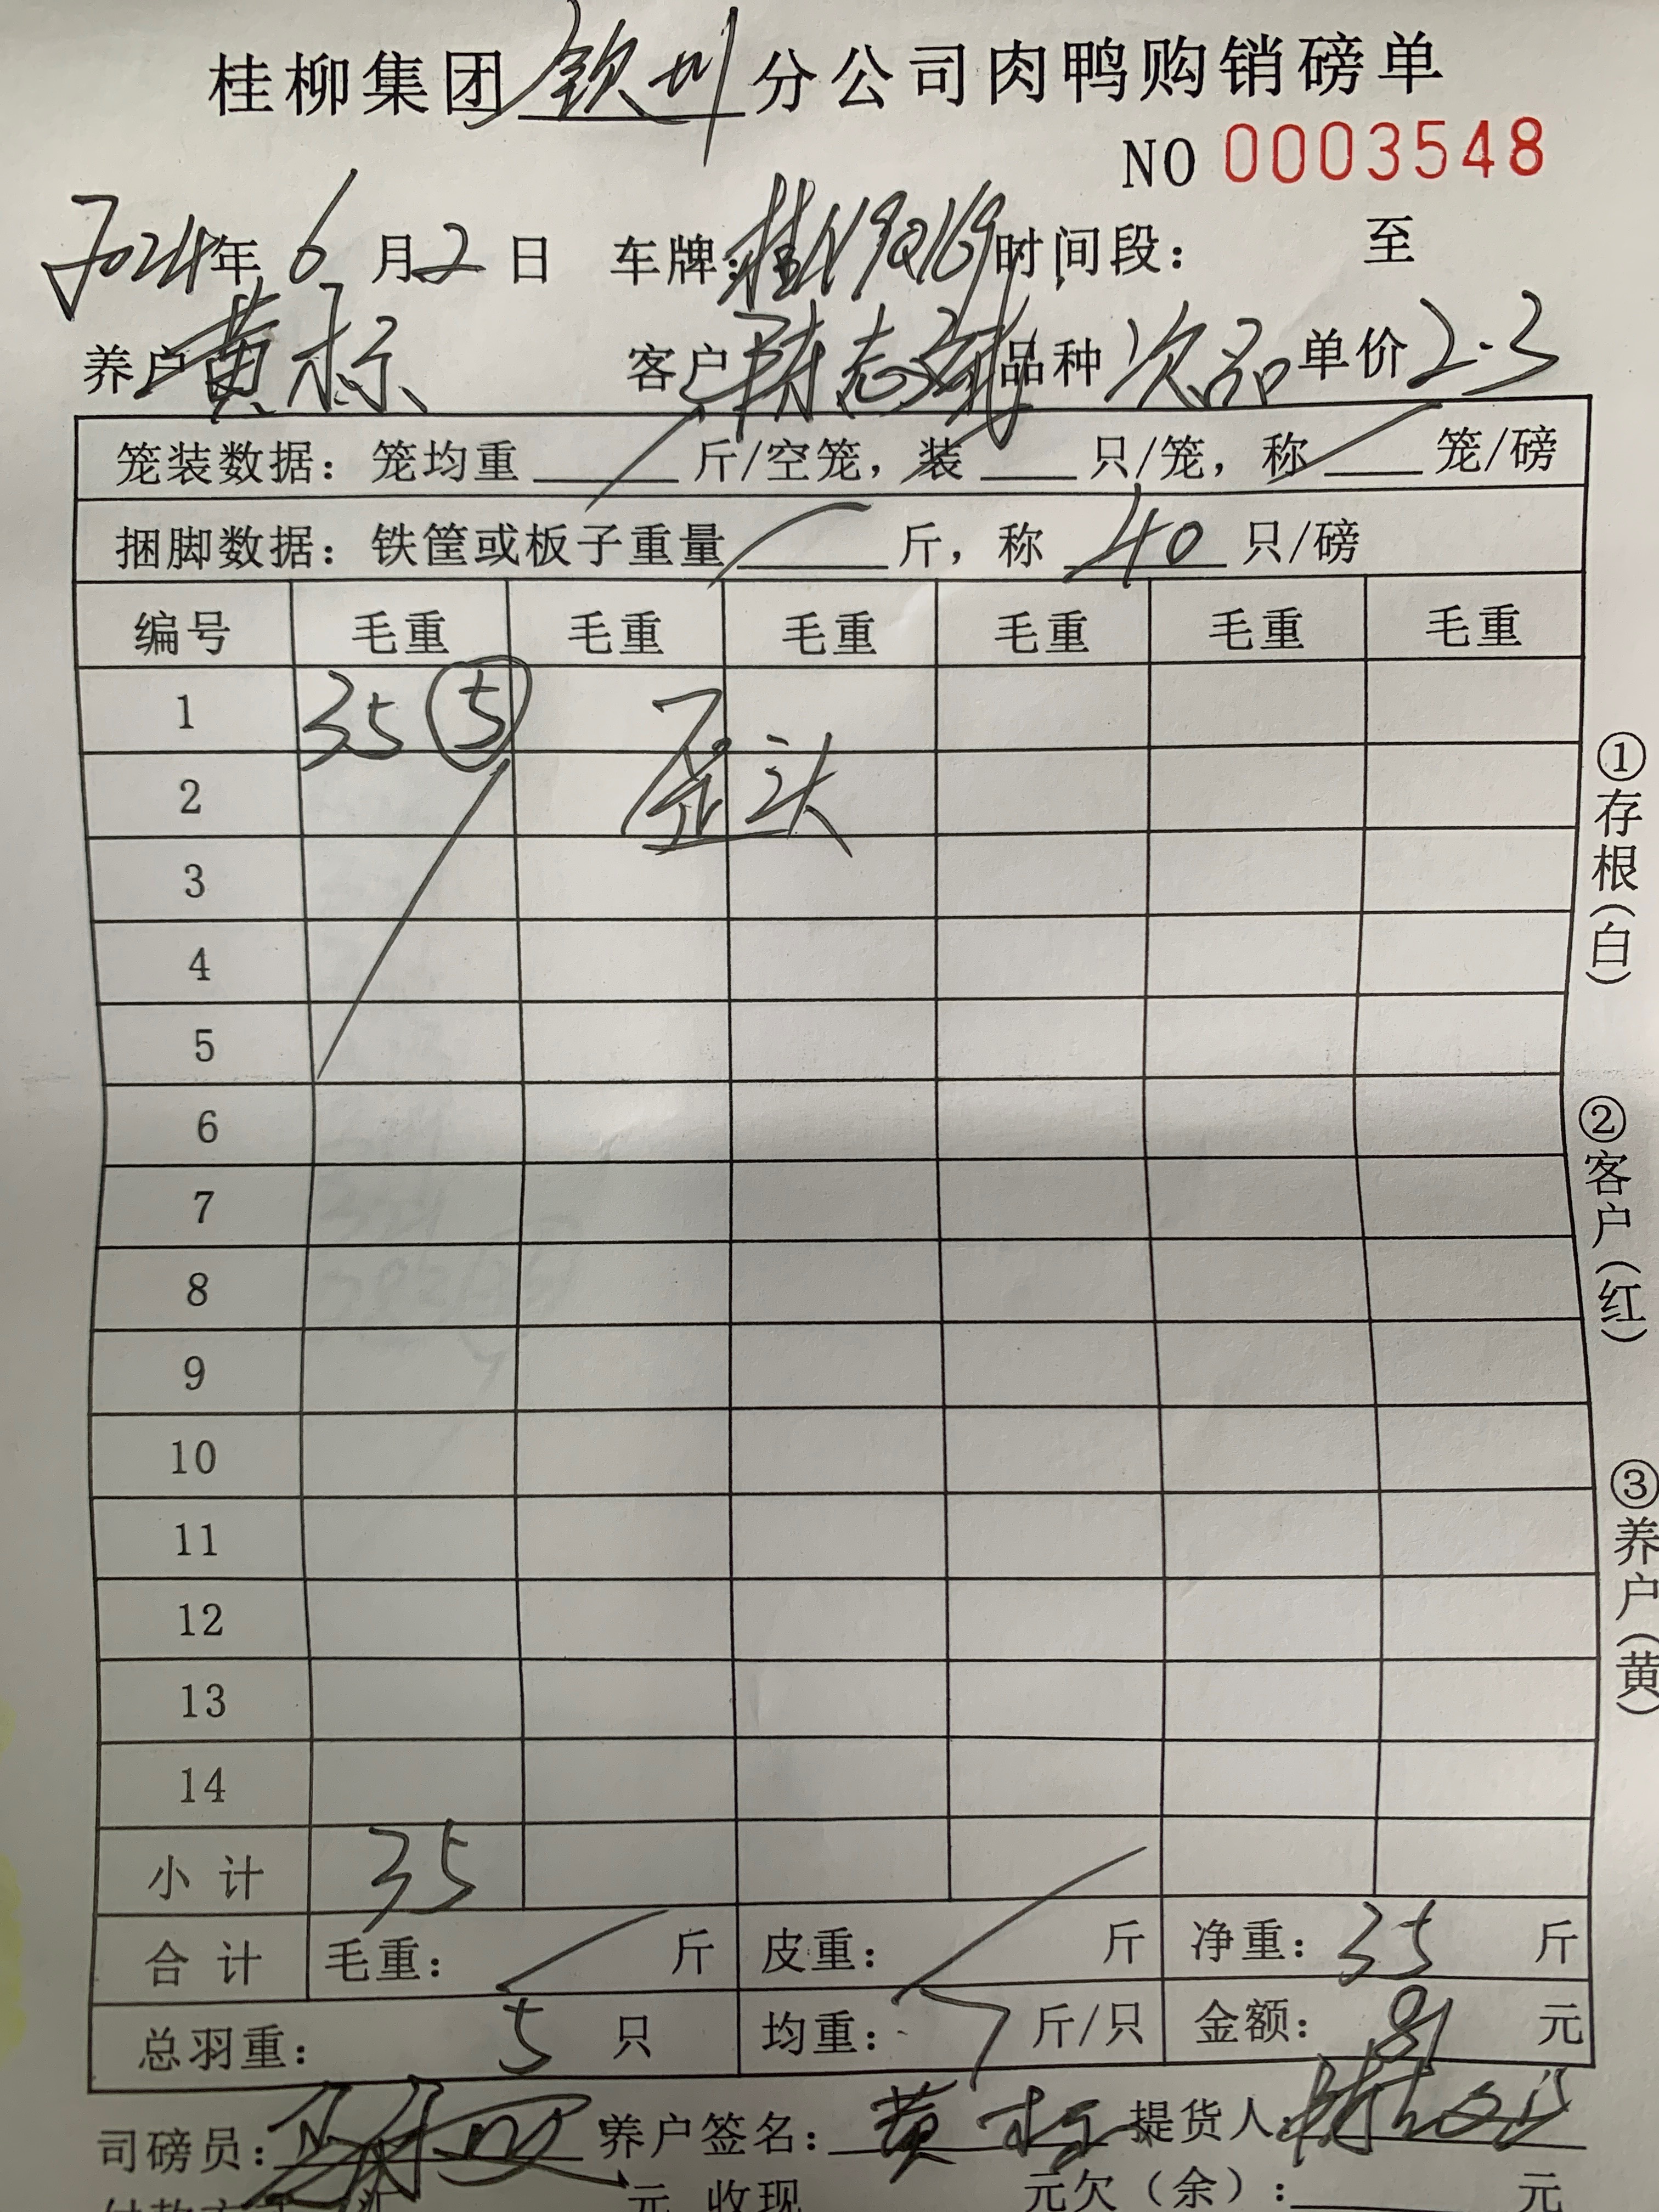 桂柳集团钦州分公司肉鸭购销磅单
NO 0003548
2024年6月2日 车牌:桂N9Q169 时间段: 至
养户 黄标 客户 陈志 品种 次品 单价 2.3
笼装数据: 笼均重 斤/空笼, 装 只/笼, 称 笼/磅
捆脚数据: 铁筐或板子重量 斤, 称 40 只/磅
编号 毛重 毛重 毛重 毛重 毛重 毛重
1 35 ⑤ 歪头
2
3
4
5
6
7
8
9
10
11
12
13
14
小计 35
合计 毛重: 斤 皮重: 斤 净重: 35 斤
总羽重: 5 只 均重: 7 斤/只 金额: 81 元
司磅员: 养户签名: 黄标 提货人:
元 收现 元欠(余): 元
①存根(白)
②客户(红)
③养户(黄)